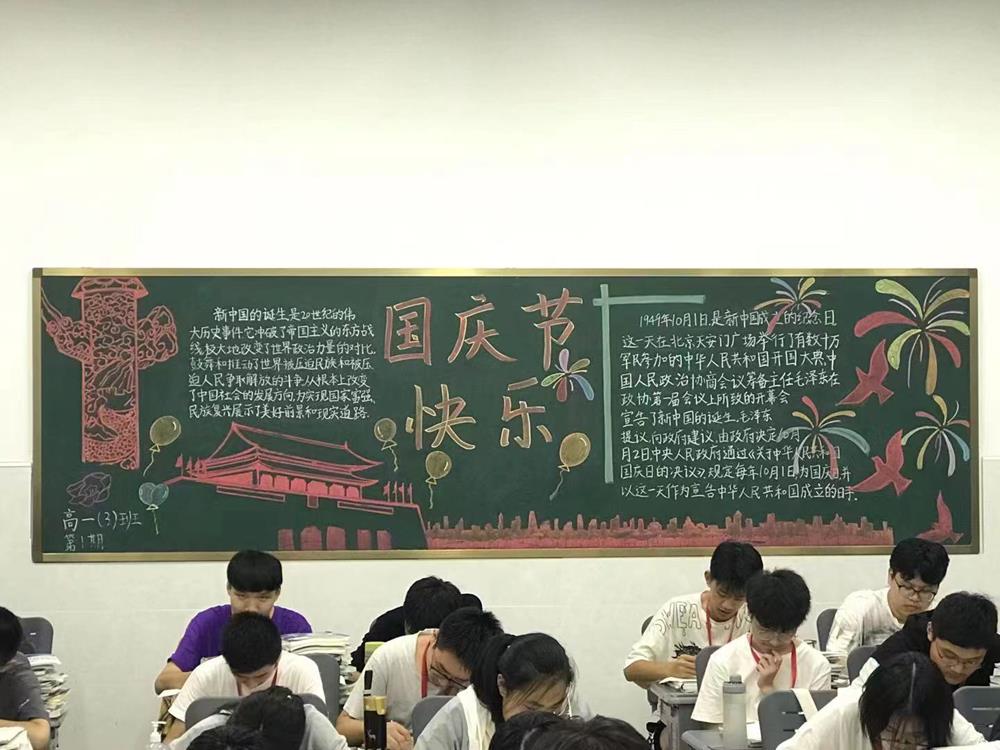 新中国的诞生是20世纪的伟
大历史事件.它冲破了帝国主义的东方战
线,极大地改变了世界政治力量的对比.
鼓舞和推动了世界被压迫民族和被压
迫人民争取解放的斗争.从根本上改变
了中国社会的发展方向,为实现国家富强,
民族复兴展示了美好前景和现实道路.
国庆节
快乐
1949年10月1日,是新中国成立的纪念日.
这一天在北京天安门广场举行了有数十万
军民参加的中华人民共和国开国大典.中
国人民政治协商会议筹备主任毛泽东在
政协第一届会议上所致的开幕会
宣告了新中国的诞生.毛泽东
提议向政府建议,由政府决定10月
月2日中央人民政府通过《关于中华人民共和国
国庆日的决议》规定每年10月1日为国庆日,并
以这一天作为宣告中华人民共和国成立的日子.
高一(3)班
第1期